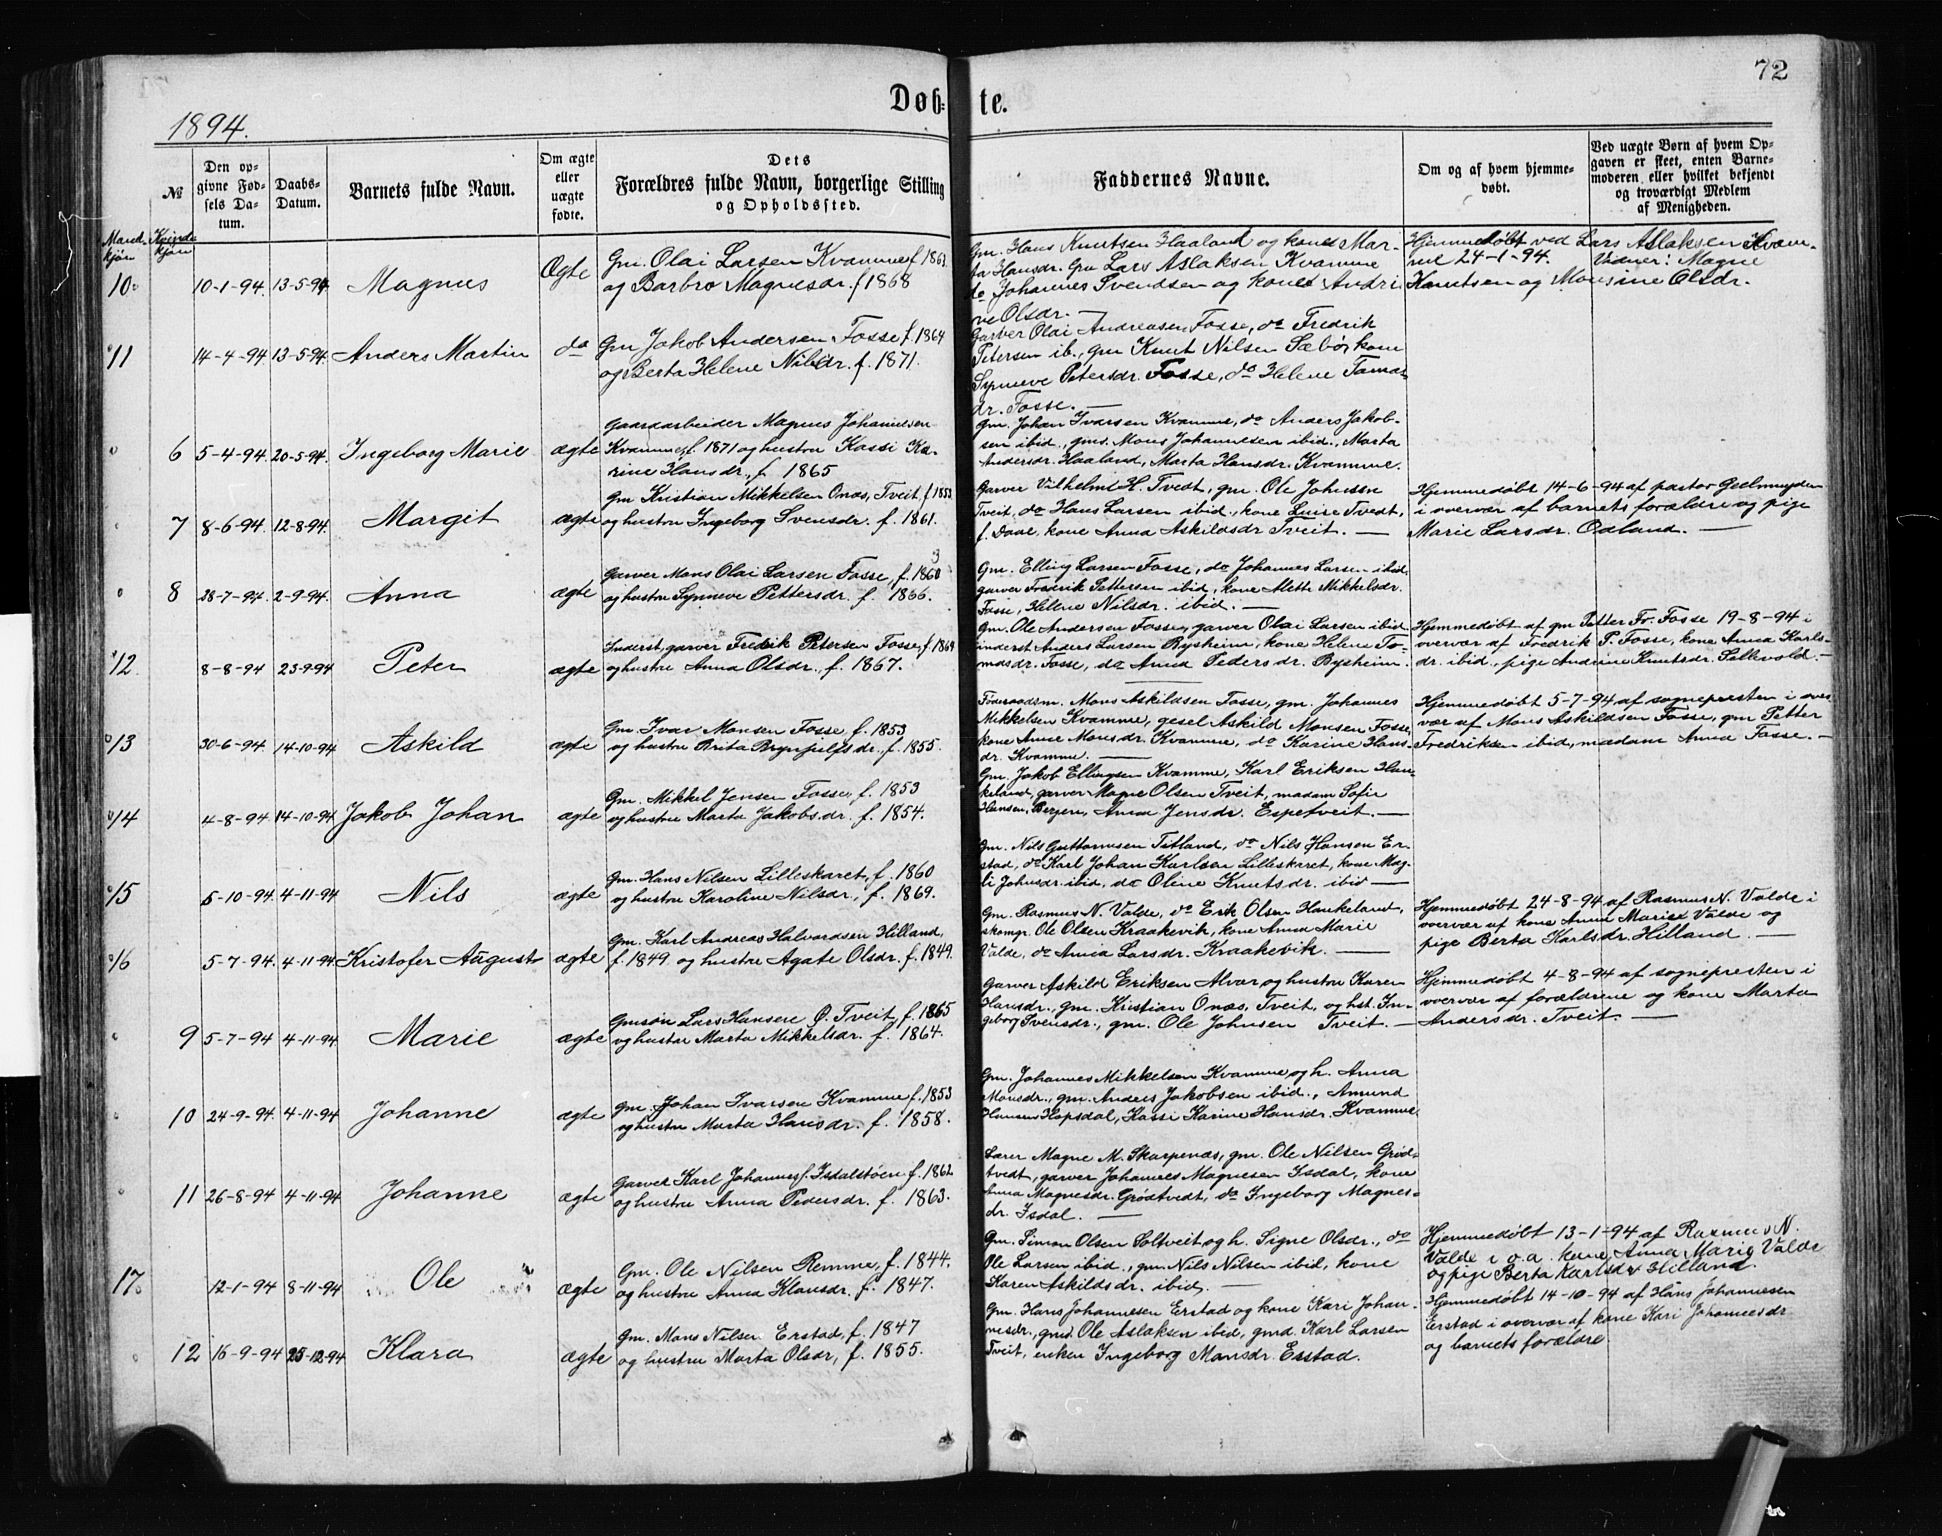 72
Døb-te.
1894.
№
Den op-
givne Fød-
sels Da-
tum.
Daabs-
Datum.
Barnets fulde Navn.
Om ægte
eller
uægte
fødte.
Dets
Forældres fulde Navn, borgerlige Stilling
og Opholdssted.
Faddernes Navne.
Om og af hvem hjemme-
døbt.
Ved uægte Børn af hvem Op-
gaven er skeet, enten Barne-
moderen eller hvilket bekjendt
og troværdigt Medlem
af Menigheden.
Mand-
kjøn
Kvinde
kjøn
10 10-1-94. 13-5-94. Magnus Ægte
Gm. Olai Larsen Kvamme f 1863.
og Barbro Magnesdr. f 1868
Gm. Hans Knutsen Haaland og kone Mar-
ta Hansdr. Gm Lars Aslaksen Kvamme
do Johannes Svendsen og kone Andri
ve Olsdr. —
Hjemmedøbt ved Lars Aslaksen Kvam-
me 24-1-94. Vidner: Magne
Knutsen og Monsine Olsdr.
11 14-4-94 13-5-94. Anders Martin do
Gm Jakob Andersen Fosse f. 1864
og Berta Helene Nilsdr. f. 1871.
Garver Olai Andreasen Fosse, do Fredrik
Petersen ib., gm Knut Nilsen Sæbø, kone
Synneve Petersdr. Fosse, do Helene Tomas
dr. Fosse. —
6 5-4-94. 20-5-94. Ingeborg Marie ægte
Gaardarbeider Magnus Johannesen
Kvamme, f. 1871 og hustru Kassi Ka-
rine Hansdr., f. 1865
Gm. Johan Ivarsen Kvamme, do Anders Jakob-
sen ibid., gms. Mons Johannesen ibid., Marta
Andersdr. Haaland, Marta Hansdr. Kvamme.
7 8-6-94. 12-8-94. Margit ægte
Gm Kristian Mikkelsen Onæs, Tveit. f. 1853
og hustru Ingeborg Svensdr. f. 1861.
Garver Vilhelm H. Tvedt, gm. Ole Johnsen
Tveit, do Hans Larsen ibid., kone Luise Tvedt,
f. Daae, kone Anna Askildsdr Tveit. —
Hjemmedøbt 14-6-94 af pastor Geelmuyden
i overvær af barnets forældre og pige
Marie Larsdr. Odland. —
8 28-7-94. 2-9-94. Anna ægte
Garver Mons Olai Larsen Fosse, f. 1860
og hustru Synneve Pettersdr. f. 1866.
Gm. Elling Larsen Fosse, do Johannes Larsen ibid,
garver Fredrik Pettersen ibid, kone Mette Mikkelsdr.
Fosse, Helene Nilsdr. ibid. —
12 8-8-94 23-9-94 Peter ægte
Inderst, garver Fredrik Petersen Fosse, f 1869
og hustru Anna Olsdr., f. 1867.
Gm. Ole Andersen Fosse, garver Olai Larsen ibid
inderst Anders Larsen Bysheim, kone Helene To-
masdr. Fosse, do Anna Pedersdr. Bysheim. —
Hjemmedøbt af gm Petter Fr. Fosse 19-8-94 i
overvær af Fredrik P. Fosse, kone Anna Karls-
dr. ibid., pige Andrine Knutsdr. Sellevold. —
13 30-6-94. 14-10-94 Askild ægte
Gm. Ivar Monsen Fosse, f. 1853
og hustru Brita Brynjulfsdr. f. 1855.
Føderaadsm. Mons Askildsen Fosse, gm. Johannes
Mikkelsen Kvamme, gesel Askild Monsen Fosse,
kone Anne Monsdr. Kvamme, do Karine Hans-
dr. Kvamme. —
Hjemmedøbt 5-7-94 af sognepresten i over
vær af Mons Askildsen Fosse, gm Petter
Fredriksen ibid, madam Anna Fosse. —
14 4-8-94 14-10-94 Jakob Johan ægte
Gm. Mikkel Jensen Fosse, f. 1853
og hustru Marta Jakobsdr. f. 1854.
Gm. Jakob Ellingsen Kvamme, Karl Eriksen Hau-
keland, garver Magne Olsen Tveit, madam Sofie
Hansen, Bergen, Anna Jensdr. Espetveit. —
15 5-10-94. 4-11-94 Nils ægte
Gm. Hans Nilsen Lilleskaret, f. 1860
og hustru Karoline Nilsdr., f. 1869.
Gm. Nils Guttormsen Titland, do Nils Hansen Er-
stad, do Karl Johan Karlsen Lilleskaret, kone Mag-
li Johnsdr. ibid, do Oline Knutsdr. ibid —
16 5-7-94. 4-11-94. Kristofer August ægte
Gm. Karl Andreas Halvordsen Hilland,
f. 1849 og hustru Agate Olsdr. f. 1849.
Gm. Rasmus N. Valde, do Erik Olsen Haukeland,
skomgr. Ole Olsen Kraakevik, kone Anna Marie
Valde, do Anna Larsdr. Kraakevik. —
Hjemmedøbt 24-8-94 af Rasmus N. Valde i
overvær af kone Anna Marie Valde og
pige Berta Karlsdr. Hilland —
9 5-7-94 4-11-94 Marie ægte
Gmsøn Lars Hansen Ø. Tveit, f. 1865
og hustru Marta Mikkelsdr. f. 1864.
Garver Askild Eriksen Alver og hustru Karen
Hansdr., gm. Kristian Onæs, Tveit, og hst. In-
geborg Svensdr., gm. Ole Johnsen Tveit. —
Hjemmedøbt 4-8-94 af sognepresten i
overvær af forældrene og kone Marta
Andersdr. Tveit. —
10 24-9-94. 4-11-94 Johanne ægte
Gm. Johan Ivarsen Kvamme f. 1853
og hustru Marta Hansdr. f. 1858.
Gm. Johannes Mikkelsen Kvamme og h. Anna
Monsdr., gm. Anders Jakobsen ibid., Amund
Hansen Hopsdal, Kassi Karine Hansdr. Kvamme.
11 26-8-94 4-11-94 Johanne ægte
Garver Karl Johannes. Isdalstøen f. 1862
og hustru Anna Pedersdr. f. 1863.
Lærer Magne M. Skarpenæs, gm. Ole Nilsen Grød-
tvedt, garver Johannes Magnesen Isdal, kone
Anna Magnesdr. Grødtvedt, do Ingeborg Magnes-
dr. Isdal. —
17. 12-1-94 8-11-94 Ole ægte
Gm. Ole Nilsen Remme, f. 1844.
og hustru Anna Klausdr. f. 1847.
Gm. Simon Olsen Soltveit og h. Signe Olsdr., do
Ole Larsen ibid., gm. Nils Nilsen ibid, kone
Karen Askildsdr. ibid. —
Hjemmedøbt 13-1-94 af Rasmus N.
Valde i o. a. kone Anna Marie Valde
og pige Berta Karlsdr Hilland.
12 16-9-94 25-12-94 Klara ægte
Gm. Mons Nilsen Erstad, f. 1847
og hustru Marta Olsdr, f. 1855.
Gm. Hans Johannesen Erstad og kone Kari Johan-
nesdr., gmd. Ole Aslaksen ibid, gmd. Karl Larsen
Tveit, enken Ingeborg Monsdr. Erstad.
Hjemmedøbt 14-10-94 af Hans Johannessen
Erstad i overvær af kone Kari Johannesdr
og barnets forældre